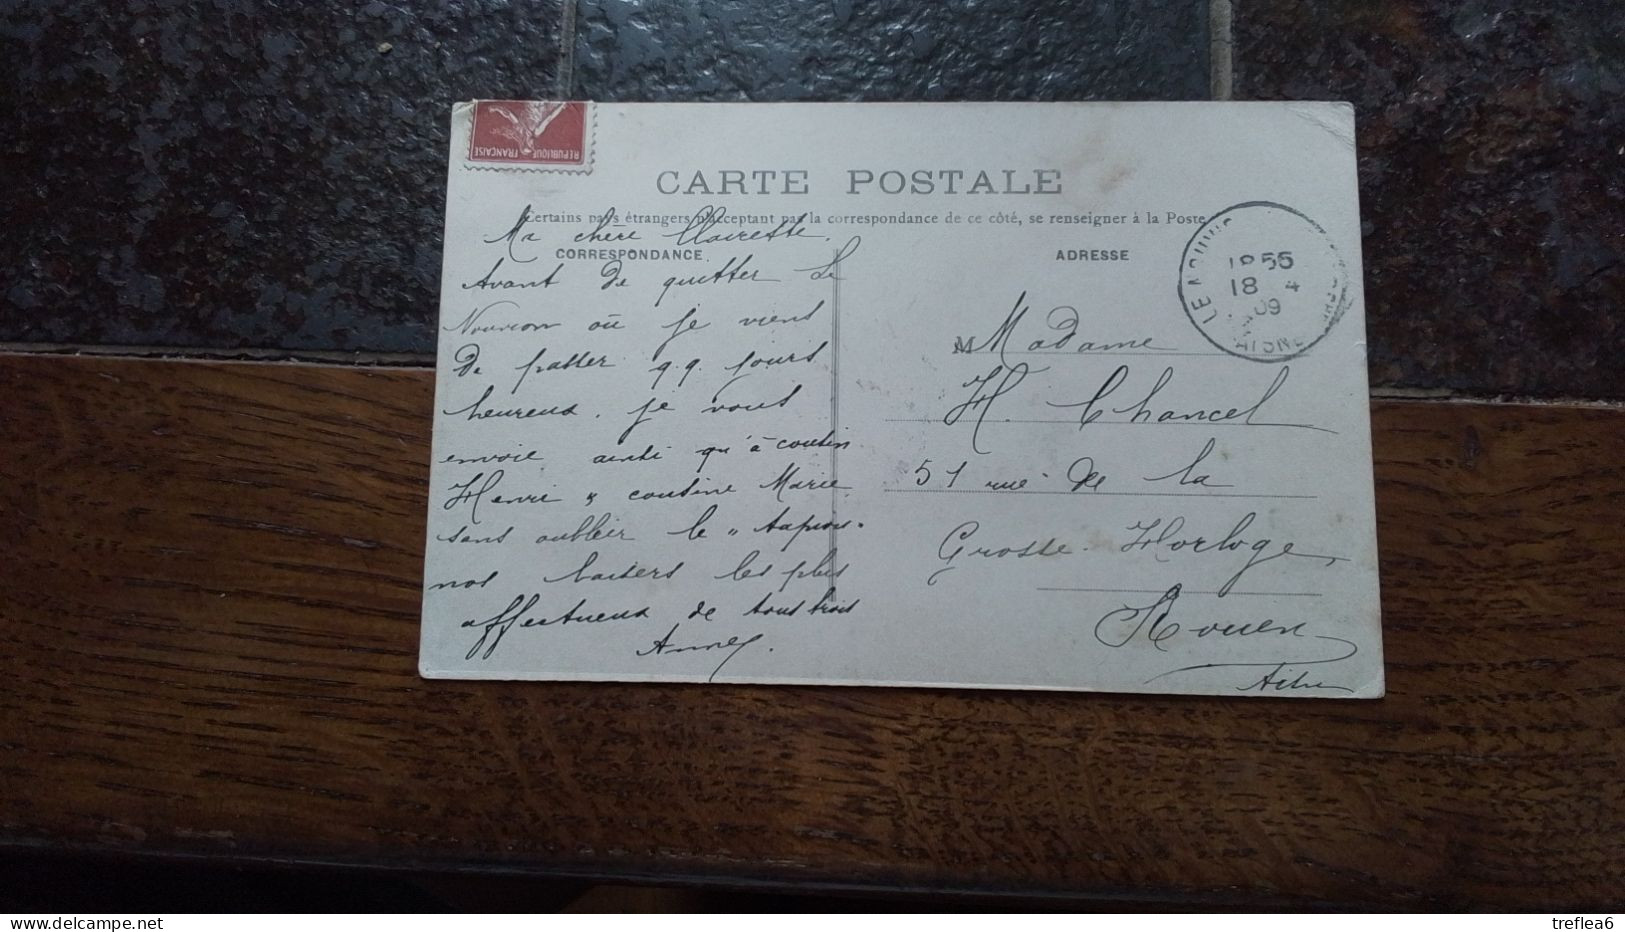 RÉPUBLIQUE FRANÇAISE
CARTE POSTALE
Certains pays étrangers n'acceptent pas la correspondance de ce côté, se renseigner à la Poste
CORRESPONDANCE
ADRESSE
Ma chère Clairette.
Avant de quitter Le
Nouvion où je viens
de passer q.q. jours
heureux, je vous
envoie ainsi qu'à cousin
Henri & cousine Marie
sans oublier le "
nos baisers les plus
affectueux de tous trois
Anne.
18 55
18 4
09
AISNE
M Madame
H. Chancel
51 rue de la
Grosse Horloge,
Rouen
trefle6